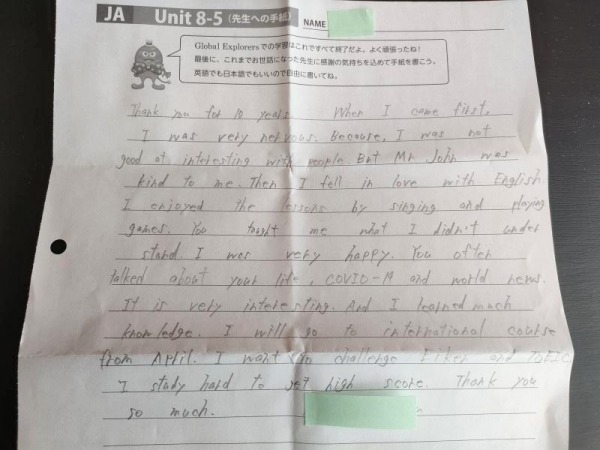 JA Unit 8-5 (先生への手紙) NAME
Global Explorersでの学習はこれですべて終了だよ。よく頑張ったね!
最後に、これまでお世話になった先生に感謝の気持ちを込めて手紙を書こう。
英語でも日本語でもいいので自由に書いてね。
Thank you for 10 years. When I came first,
I was very nervous. Because, I was not
good at interesting with people But Mr John was
kind to me. Then I fell in love with English.
I enjoyed the lessons by singing and playing
games. You taught me what I didn't under
stand. I was very happy. You often
talked about your life, COVID-19 and world news.
It is very interesting. And I learned much
knowledge. I will go to international course
from April. I want to challenge Eiken and TOEIC
I study hard to get high score. Thank you
so much.